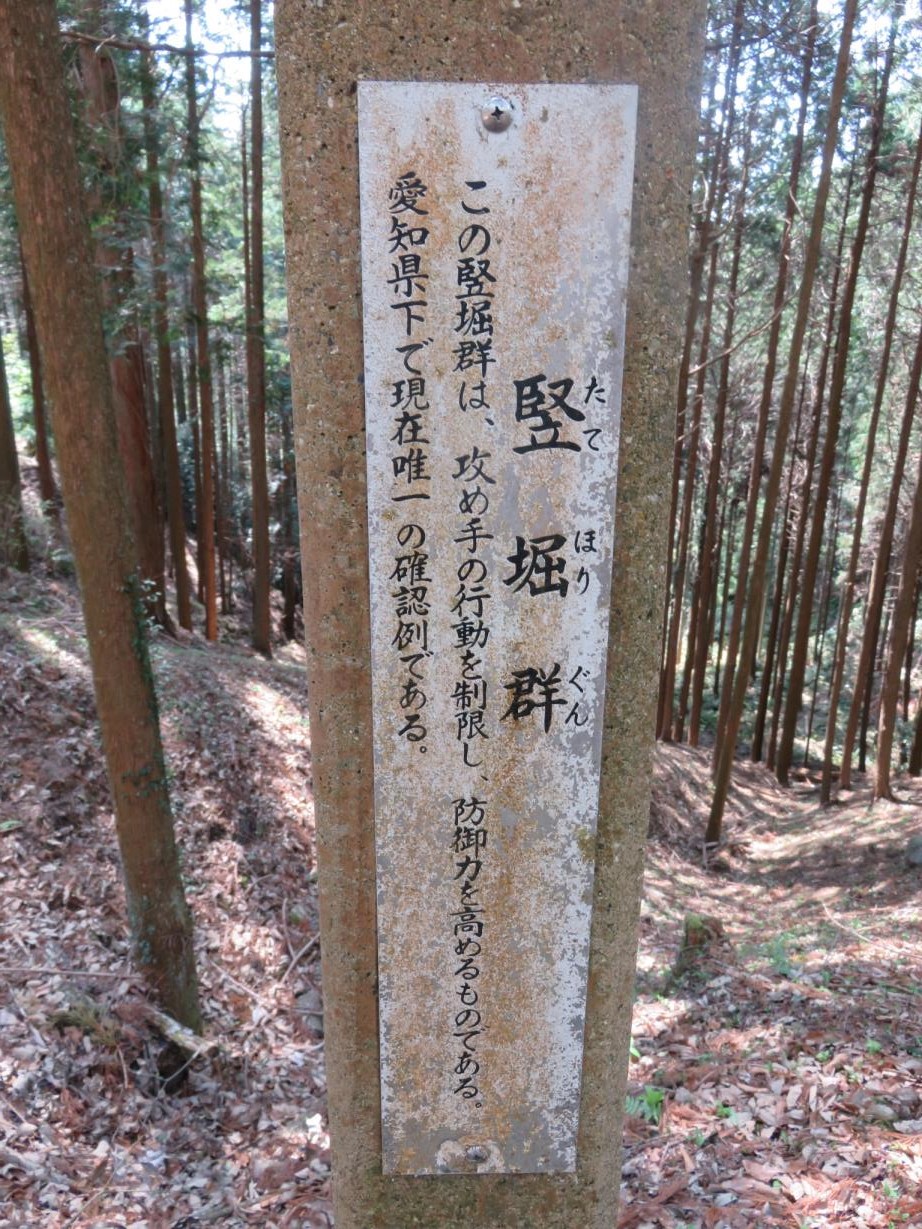 たて ほり ぐん
竪堀群
この竪堀群は、攻め手の行動を制限し、防御力を高めるものである。
愛知県下で現在唯一の確認例である。